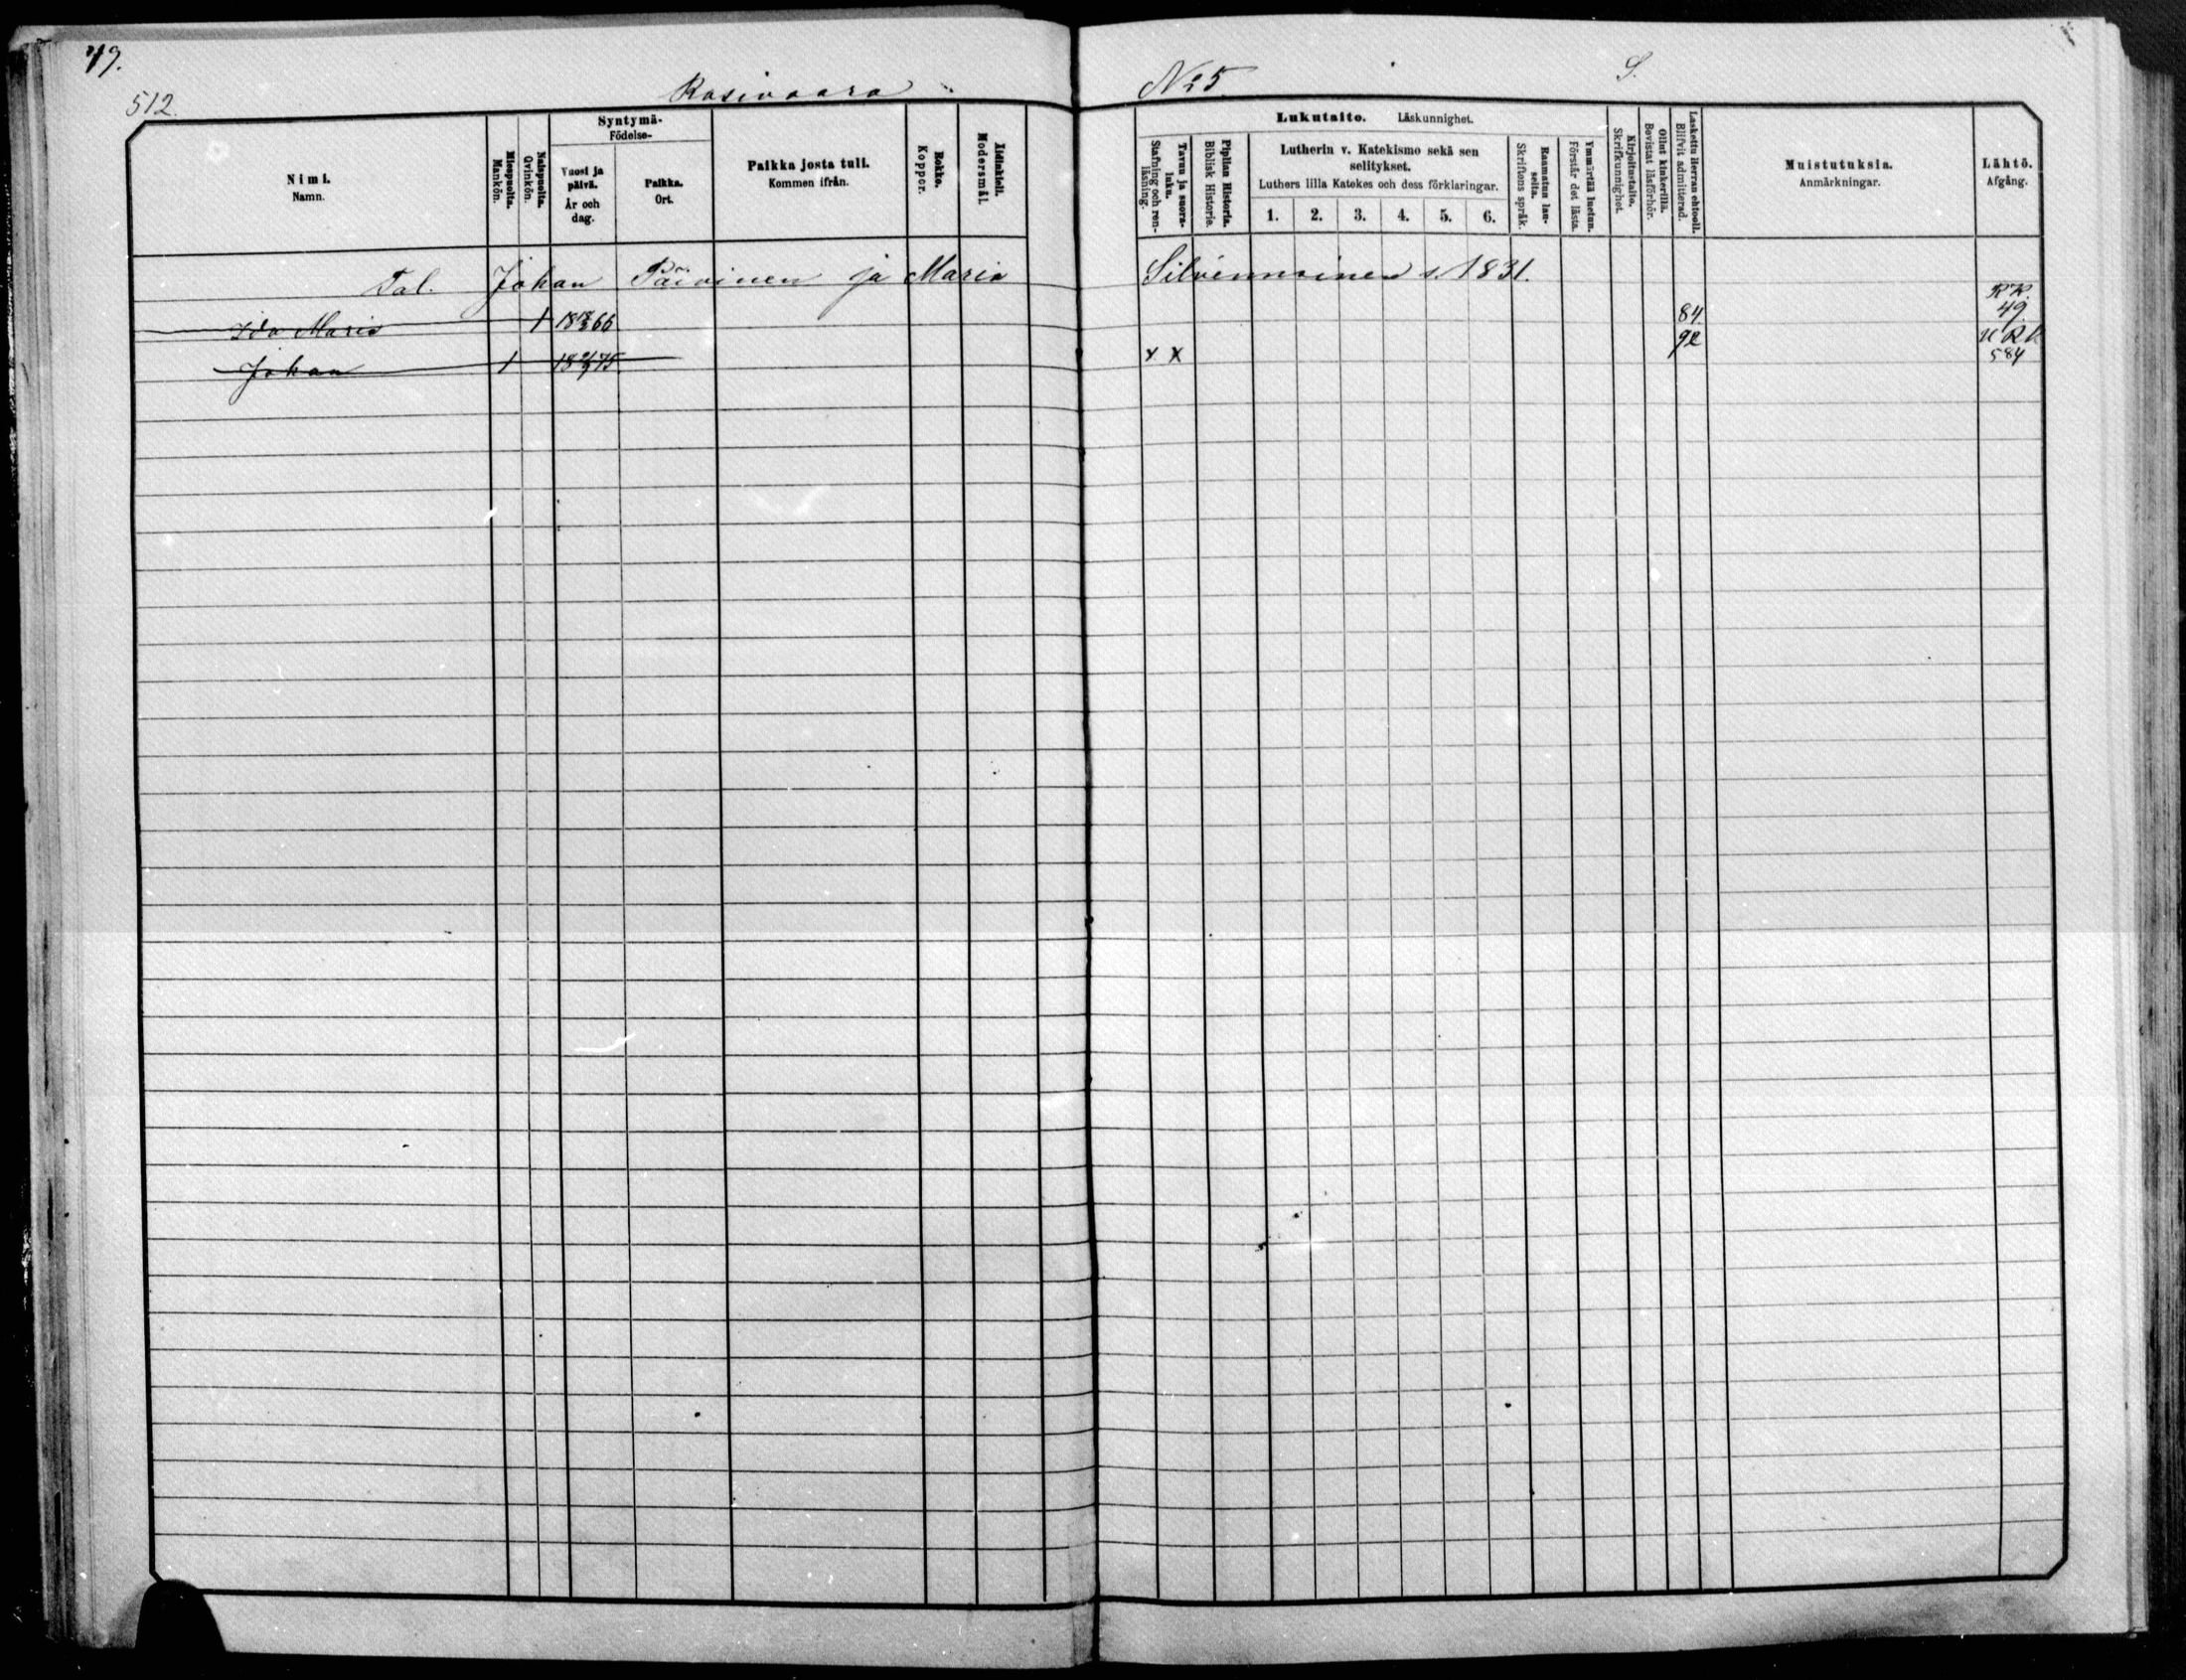 49.
512.
Rasivaara
№ 5
S.
Nimi.
Namn.
Miespuolia.
Mankön.
Naispuolia.
Qvinkön.
Syntymä-
Födelse-
Vuosi ja
päivä.
År och
dag.
Paikka.
Ort.
Paikka josta tuli.
Kommen ifrån.
Rokko.
Koppor.
Äidinkieli.
Modersmål.
Lukutaito. Läskunnighet.
Tavuu ja suora-
luku.
Stafning och ren-
läsning.
Piplian Historia.
Biblisk Historie.
Lutherin v. Katekismo sekä sen
selitykset.
Luthers lilla Katekes och dess förklaringar.
1. 2. 3. 4. 5. 6.
Raamatun lau-
seita.
Skriftens språk.
Ymmärtää luetun.
Förstår det lästa.
Kirjoitustaito.
Skrifkunnighet.
Ollut kinkerillä.
Bevistat läsförhör.
Laskettu Herran ehtoolI.
Blifvit admitterad.
Muistutuksia.
Anmärkningar.
Lähtö.
Afgång.
Tal. Johan Päivinen ja Maria Silvennoinen s. 1831.
Ida Maria 1 66 84 RK. 49
Johan 1 75 x x 92 URK 584